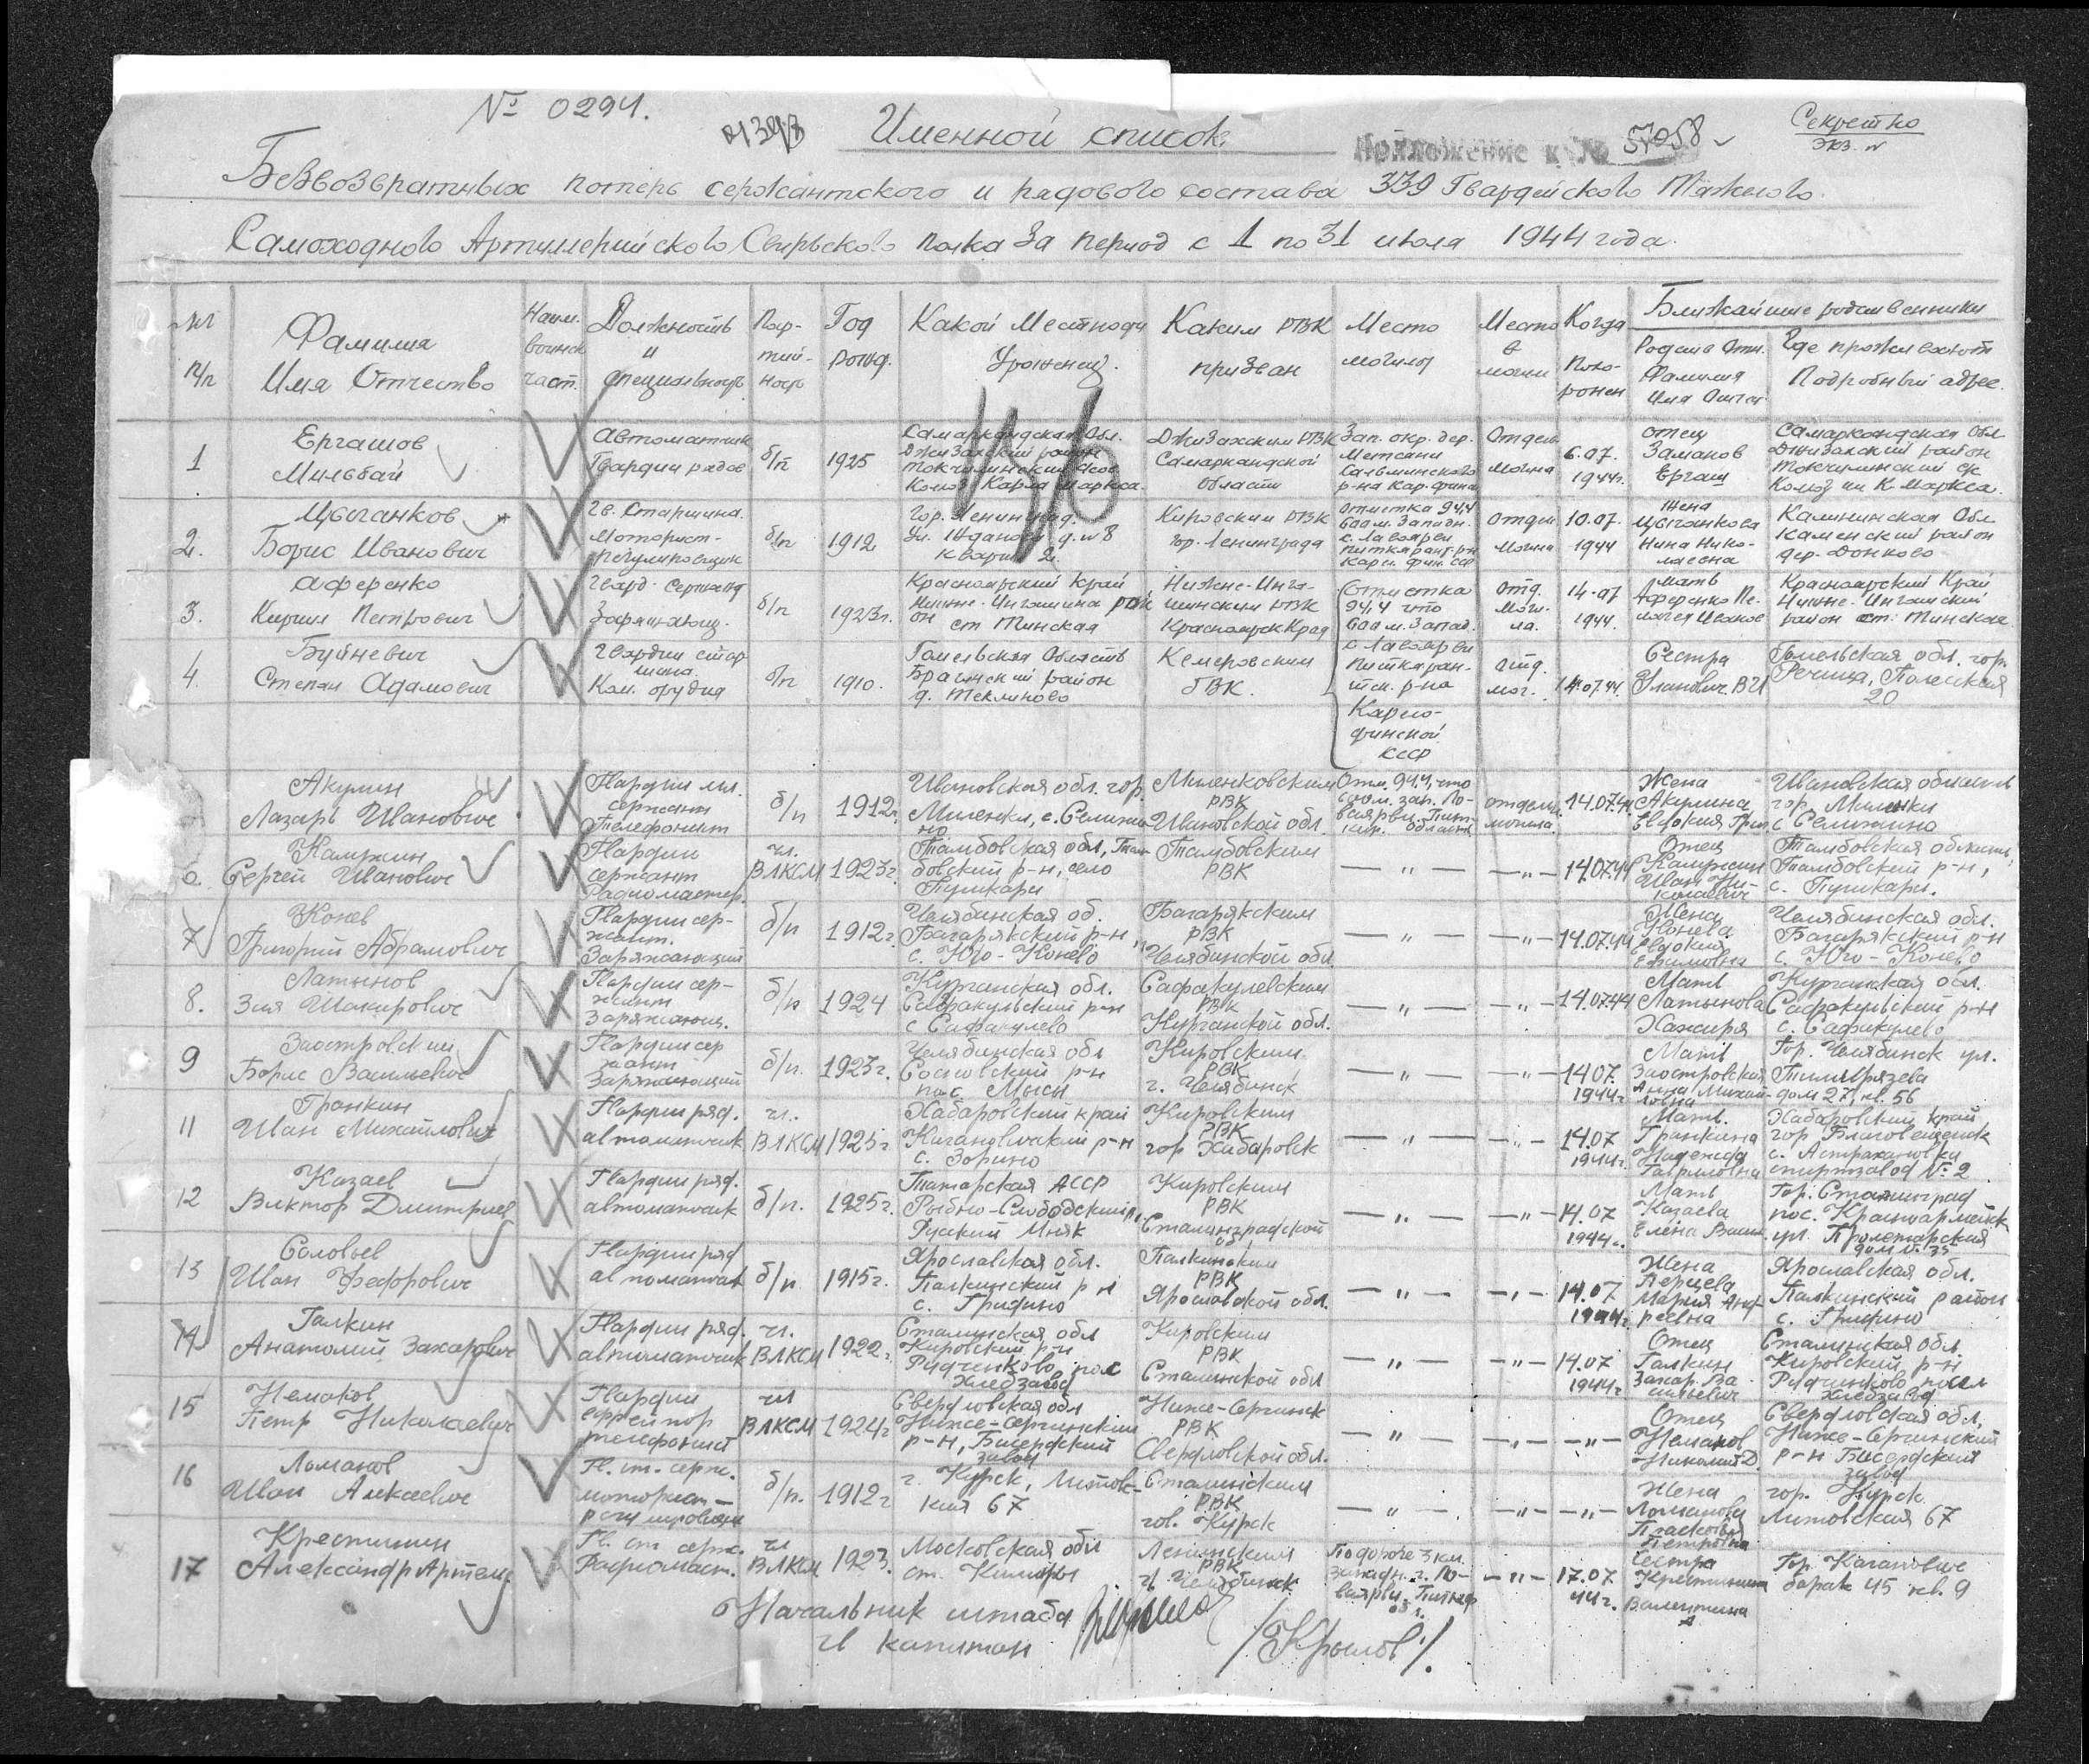 № 0294.
Именной список
Приложение к № 57058
Секретно
экз. №
Безвозвратных потерь сержантского и рядового состава 339 Гвардейсково Тяжелого
Самоходново Артиллерийсково Свирьсково полка за период с 1 по 31 июля 1944 года.
№№ п/п
Фамилия Имя Отчество
Наим. воинск част.
Должность и специальность
Пар- тий- ность
Год рожд.
Какой Местности Уроженец.
Каким РВК призван
Место могилы
Место в могиле
Когда Похо- ронен
Ближайшие родственники
Родств Отн. Фамилия Имя Отчест
Где проживают Подробный адрес.
1
Ергашов
Мильбай
Автоматчик
Гвардии рядов
б/п
1925
Самаркандская Обл.
Джизакский район
Колхоз Карла Маркса.
Джизакским РВК
Самаркандской
Области
Зап. окр. дер.
р-на Кар. фин
Отдел.
могила
6.07.
1944г.
отец
Заманов
Ергаш
Самаркандская Обл
Джизакский район
Колхоз им К-Маркса.
2.
Цыганков
Борис Иванович
Гв. Старшина.
Моторист-
регулировщик
б/п
1912
Гор. Ленинград.
Ул. Жданова д. № 8
Кварт 2.
Кировским РВК
гор. Ленинграда
отметка 94,4
600 м. Западн.
с. Лавоярви
питкярант. р-н
Карел. фин. ССР
отдел.
могила
10.07.
1944
жена
Цыганкова
Нина Нико-
лаевна
Калининская Обл
Каменский район
дер. Донково
3.
Аференко
Кирил Петрович
Гвард. Сержант
Заряжающ.
б/п
1923г.
Красноярский край
Нижне-Ингашина рай
он
ст Тинская
Нижне-Инга-
шинским РВК
Красноярск Края
Отметка
94,4 что
600 м. Запад.
с Лавоярви
Питкяран-
тск. р-на
Карело-
финской
КССР
отд.
моги-
ла.
14.07
1944.
мать
Аференко Пе-
лагея Иванов
Красноярский Край
Нижне-Ингашский
район ст. Тинская
4.
Буйневич
Степан Адамович
Гвардии стар
шина.
Ком. орудия
б/п
1910.
Гомельская Область
Брагинский район
д. Теклиново
Кемеровским
ГВК.
отд.
мог.
14.07.44.
Сестра
Уланович. В И
Гомельская обл. гор.
Речица, Полесская
20
Акулин
Лазарь Иванович
Гвардии мл.
сержант
Телефонист
б/п
1912г.
Ивановская обл. гор.
Меленки, с. Селижи
но
Меленковским
РВК
Ивановской обл.
Отм. 94,4, что
600 м. зап. Ло-
ваярви, Пит-
кяр. области
отдельн.
могила.
14.07.44
Жена
Акулина
Евдокия Григ
Ивановская область
гор. Меленки
с Селижино
6.
Камужин
Сергей Иванович
Гвардии
сержант
Радиомастер.
чл.
ВЛКСМ
1923г.
Тамбовская обл, Там
бовский р-н, село
Пушкари
Тамбовским
РВК
— " —
— " —
14.07.44
Отец
Камужин
Иван Ни-
колаевич
Тамбовская область,
Тамбовский р-н,
с. Пушкари.
7
Конев
Григорий Абрамович
Гвардии сер-
жант.
Заряжающий
б/п
1912г.
Челябинская об.
Багарякский р-н,
с. Юго-Конево
Багарякским
РВК
Челябинской обл.
— " —
— " —
14.07.44
Жена
Конева
Евдокия
Ефимовна
Челябинская обл.
Багарякский р-н
с. Юго-Конево
8.
Латыпов
Зия Шакирович
Гвардии сер-
жант
Заряжающ.
б/п
1924
Курганская обл.
Сафакульский р-н
с Сафакулево
Сафакулевским
РВК
Курганской обл.
— " —
— " —
14.07.44
Мать
Латыпова
Хажиря
Курганская обл.
Сафакульский р-н
с. Сафакулево
9
Заостровский
Борис Васильевич
Гвардии сер
жант
Заряжающий
б/п.
1923г.
Челябинская обл
Сосновский р-н
пос Мысы
Кировским
РВК
г. Челябинск
— " —
— " —
14.07.
1944г.
Мать
Заостровская
Анна Михай-
ловна
Гор. Челябинск ул.
Тимирязева
дом 27, кв. 56
11
Гранкин
Иван Михайлович
Гвардии ряд.
автоматчик
чл.
ВЛКСМ
1925г
Хабаровский край
Кагановичский р-н
с. Зорино
Кировским
РВК
гор Хабаровск
— " —
— " —
14.07
1944г.
Мать.
Гранкина
Надежда
Гавриловна
Хабаровский край
гор Благовещенск
с. Астрахановка
спиртзавод № 2
12
Казаев
Виктор Дмитриев
Гвардии ряд.
автоматчик
б/п.
1925г.
Татарская АССР
Рыбно-Слободский р,
Русский Мняк
Кировским
РВК
Сталинградской
об
— " —
— " —
14.07
1944г.
Мать
Казаева
Елена Васил.
Гор. Сталинград
пос. Красноармейск
ул. Пролетарская
дом № 35
13
Соловьев
Иван Федорович
Гвардии ряд
автоматчик
б/п
1915г.
Ярославская обл.
Палкинский р-н
с. Гридино
Палкинским
РВК
Ярославской обл.
— " —
— " —
14.07
1944г.
Жена
Перцева
Мария Анд-
реевна
Ярославская обл.
Палкинский район
с. Гридино
14
Галкин
Анатолий Захарович
Гвардии ряд.
автоматчик
чл.
ВЛКСМ
1922г.
Сталинская обл
Кировский р-н
Рудченково, пос
Хлебзавод
Кировским
РВК
Сталинской обл
— " —
— " —
14.07
1944г
Отец
Галкин
Захар. Ва
сильевич
Сталинская обл.
Кировский р-н
Рудченково посел
хлебзавод
15
Немаков
Петр Николаевич
Гвардии
ефрейтор
телефонист
чл
ВЛКСМ
1924г
Свердловская обл
Ниже-Сергинский
р-н, Бисердский
завод
Ниже-Сергинск
РВК
Свердловской обл.
— " —
— " —
— " —
Отец
Немаков
Николай Д.
Свердловская обл,
Ниже-Сергинский
р-н Бисердский
завод
16
Ломанов
Иван Алексеевич
Гв. ст. серж.
моторист-
регулировщик
б/п.
1912г
г. Курск, Литов-
кая 67
Сталинским
РВК
гор. Курск
— " —
— " —
— " —
Жена
Ломанова
Прасковья
Петровна
гор. Курск
Литовская 67
17
Крестинин
Александр Артем.
Гв. ст серж.
Радиомаст.
чл
ВЛКСМ
1923.
Московская обл
ст. Кашира
Ленинским
РВК
г. Челябинск
По дороге 3 км.
западн. г. Ло-
ваярви, Питкяр
об.
— " —
17.07
44г.
Сестра
Крестинина
Валентина
А
Гор. Каганович
барак 45 кв. 9
Начальник штаба
гв капитан /Крылов/.